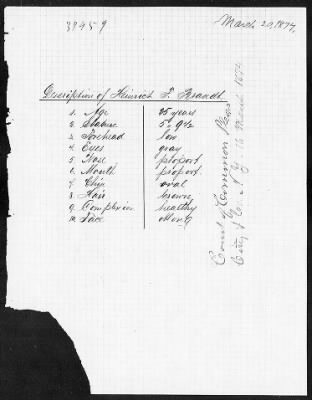 39959
March 20, 1874,
Description of Heinrich F. Brandt.
1. Age 25 years
2. Stature 5' 9½
3. Forehead low
4. Eyes gray
5. Nose proport
6. Mouth proport
7. Chin oval
8. Hair brown
9. Complexion healthy
10. Face oblong
Court of Common Pleas
City & Co. N. Y. 16 March 1874